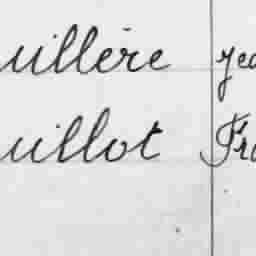 uillère Jea
uillot Fra